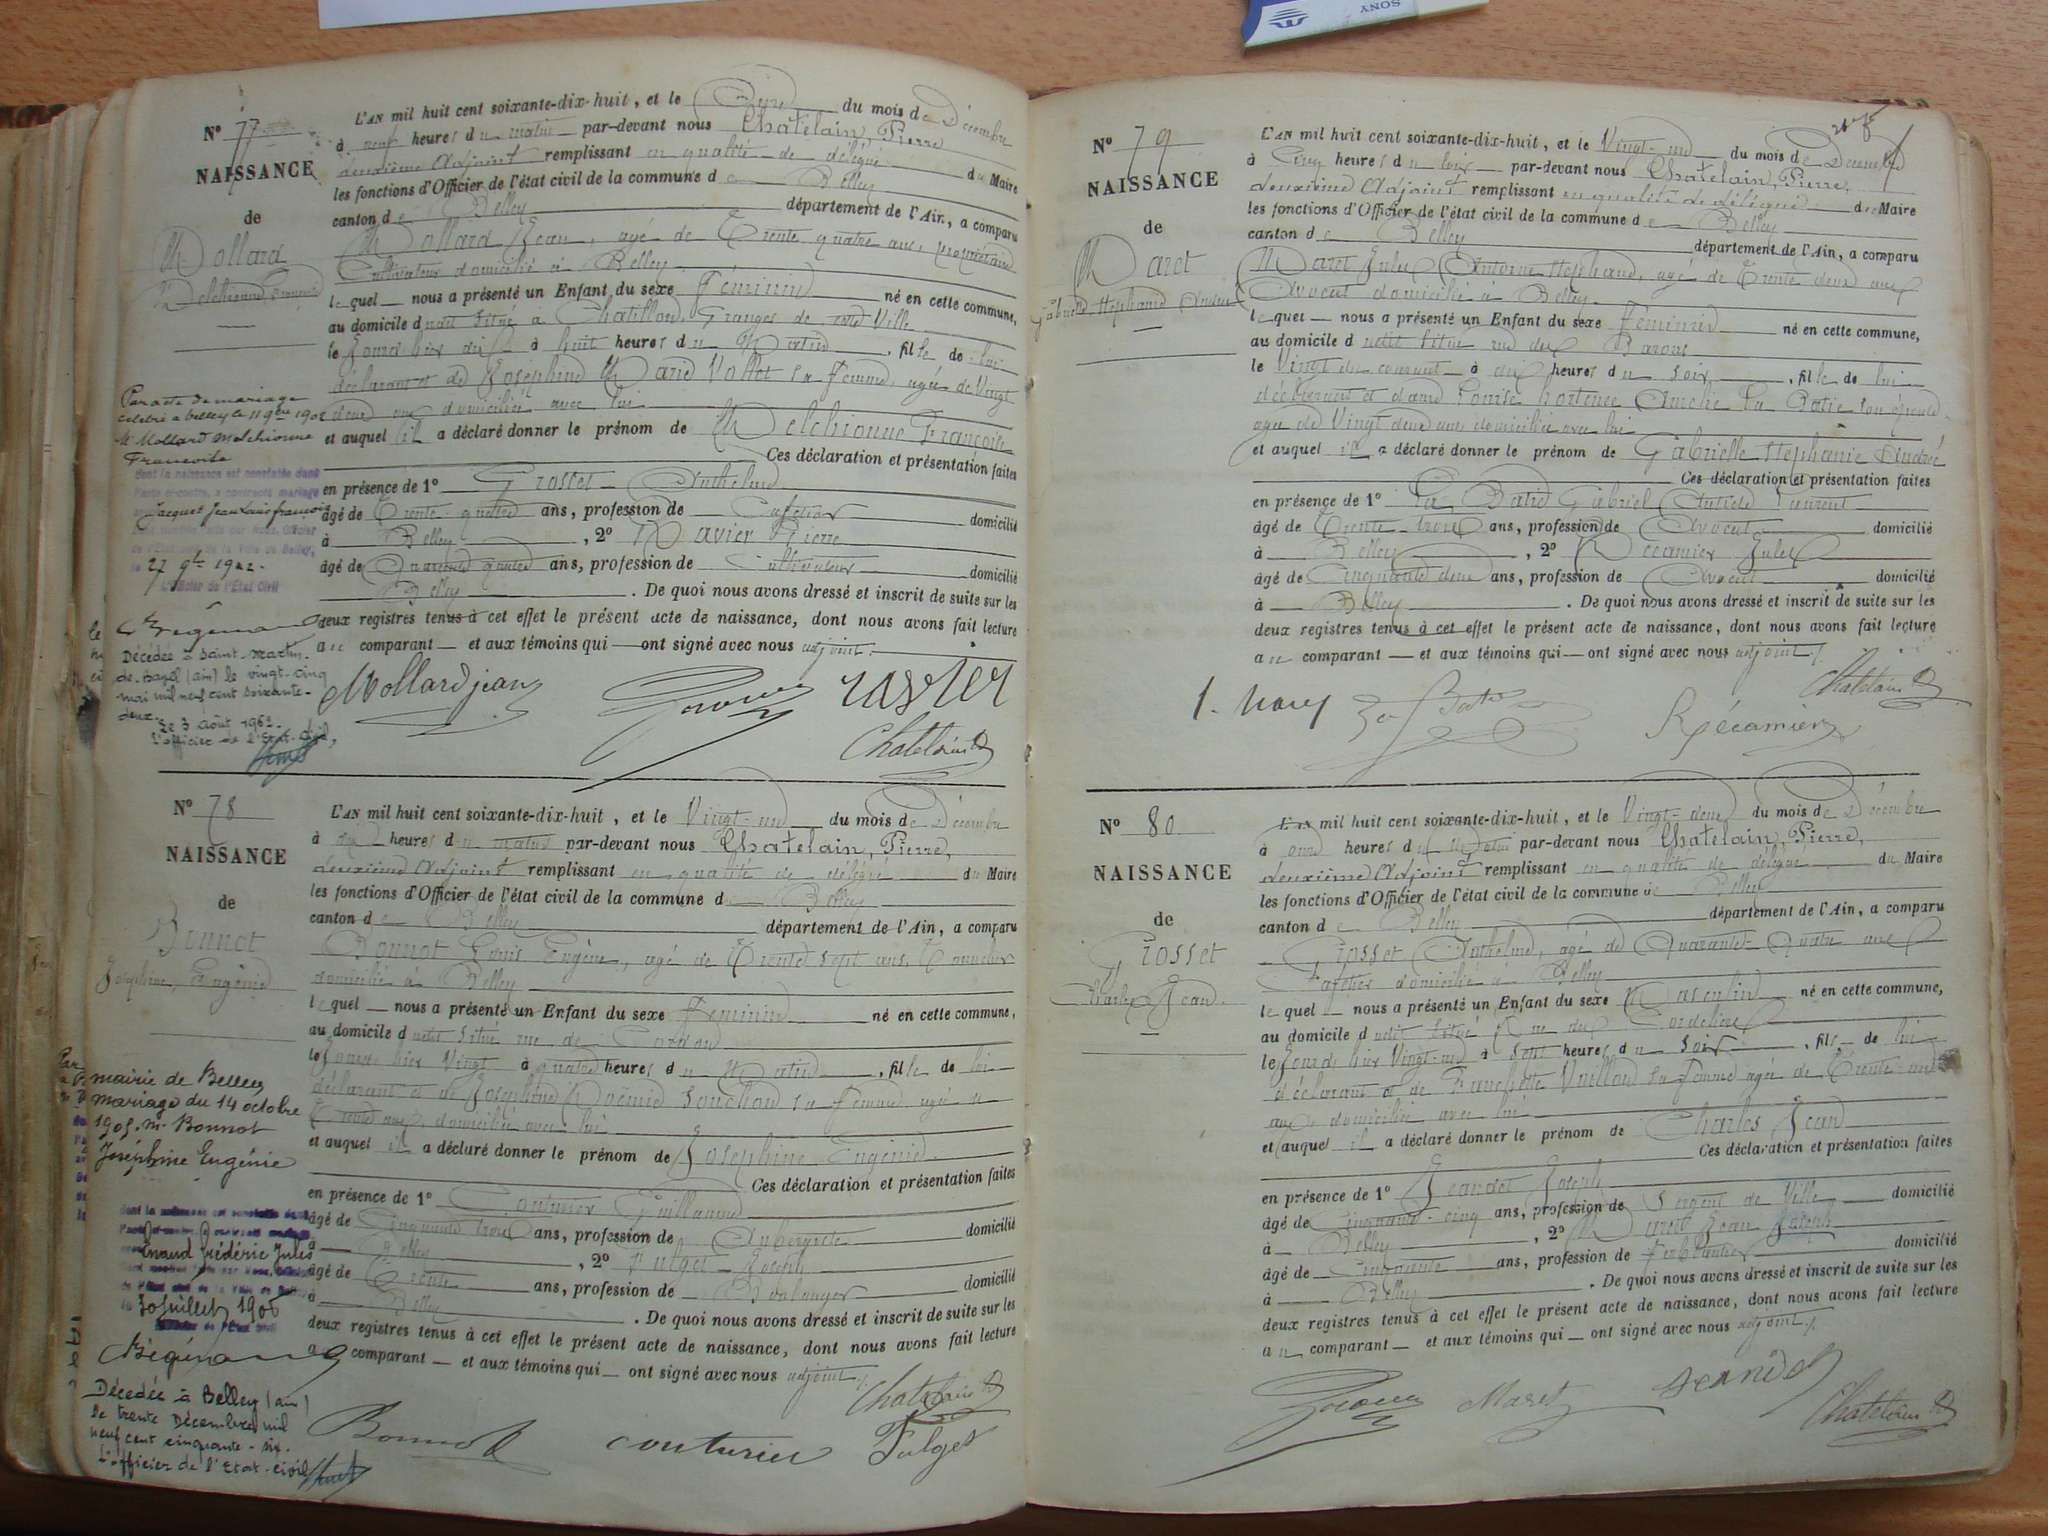 SONY
N° 77
NAISSANCE
de
Mollard
Melchionne Françoise
L'AN mil huit cent soixante-dix-huit, et le onze du mois de Décembre
à neuf heures du matin par-devant nous Chatelain, Pierre
deuxième Adjoint remplissant en qualité de délégué du Maire
les fonctions d'Officier de l'état civil de la commune de Belley
canton de Belley département de l'Ain, a comparu
Mollard Jean, agé de Trente quatre ans, propriétaire
Cultivateur domicilié à Belley
lequel nous a présenté un Enfant du sexe Féminin né en cette commune,
au domicile dudit situé à Chatillon, Granges de cette Ville
le jour d'hier dix à huit heures du Matin, fille de lui
déclarant et de Joséphine Marie Vollet sa femme, agée de Vingt
deux ans domiciliée avec lui
et auquel il a déclaré donner le prénom de Melchionne Françoise
Ces déclaration et présentation faites
en présence de 1° Grosset Anthelme
âgé de Trente quatre ans, profession de Cafetier domicilié
à Belley, 2° Ravier Pierre
âgé de Quarante quatre ans, profession de Cultivateur domicilié
Belley. De quoi nous avons dressé et inscrit de suite sur les
deux registres tenus à cet effet le présent acte de naissance, dont nous avons fait lecture
au comparant et aux témoins qui ont signé avec nous adjoint.
Mollard jean ravier
Chatelain
Par acte de mariage
célébré à belley le 11 9bre 1902
Mollard Melchionne
Francoise
dont la naissance est constatée dans
l'acte ci-contre, a contracté mariage
Jacquet Jean Louis francois
de l'Etat civil de la Ville de Belley,
le 27 9bre 1902.
L'Officier de l'Etat Civil
Décédée à Saint-Martin-
de-Bavel (ain) le vingt-cinq
mai mil neuf cent soixante-
deux.
Le 3 Août 1962.
L'officier de l'Etat-Civil,
N° 78
NAISSANCE
de
Bonnot
Joséphine, Eugénie
L'AN mil huit cent soixante-dix-huit, et le Vingt-un du mois de Décembre
à heures du matin par-devant nous Chatelain, Pierre,
deuxième Adjoint remplissant en qualité de délégué du Maire
les fonctions d'Officier de l'état civil de la commune de Belley
canton de Belley département de l'Ain, a comparu
Bonnot Louis Eugène, agé de Trente sept ans,
domicilié à Belley
lequel nous a présenté un Enfant du sexe Féminin né en cette commune,
au domicile dudit situé rue de
le jour d'hier Vingt à quatre heures du Matin, fille de lui
déclarant et de Joséphine Souchon sa femme agée de
Trente ans, domiciliée avec lui
et auquel il a déclaré donner le prénom de Joséphine Eugénie
Ces déclaration et présentation faites
en présence de 1° Couturier Guillaume
âgé de Cinquante trois ans, profession de Aubergiste domicilié
à Belley, 2° Fulget Joseph
âgé de Trente ans, profession de Boulanger domicilié
à Belley. De quoi nous avons dressé et inscrit de suite sur les
deux registres tenus à cet effet le présent acte de naissance, dont nous avons fait lecture
au comparant et aux témoins qui ont signé avec nous adjoint.
Chatelain
Bonnot couturier Fulget
mairie de Belley
mariage du 14 octobre
1905. Bonnot
Joséphine Eugénie
Frédéric Jules
30 Juillet 1906
Décédée à Belley (ain)
le trente Décembre mil
neuf cent cinquante-six.
L'officier de l'Etat-civil
N° 79
NAISSANCE
de
Maret
Gabrielle Stéphanie Andrée
L'AN mil huit cent soixante-dix-huit, et le Vingt-un du mois de Décembre
à Cinq heures du soir par-devant nous Chatelain, Pierre,
deuxième Adjoint remplissant en qualité de délégué du Maire
les fonctions d'Officier de l'état civil de la commune de Belley
canton de Belley département de l'Ain, a comparu
Maret Jules Antoine Stéphane, agé de Trente deux ans
Avocat domicilié à Belley
lequel nous a présenté un Enfant du sexe Féminin né en cette commune,
au domicile dudit situé rue des Barons
le Vingt du courant à deux heures du soir, fille de lui
déclarant et dame Louise hortense La Batie son épouse
agée de Vingt deux ans domiciliée avec lui
et auquel il a déclaré donner le prénom de Gabrielle Stéphanie Andrée
Ces déclaration et présentation faites
en présence de 1° La Batie Gabriel Laurent
âgé de Trente trois ans, profession de Avocat domicilié
à Belley, 2° Récamier Jules
âgé de Cinquante deux ans, profession de Avocat domicilié
à Belley. De quoi nous avons dressé et inscrit de suite sur les
deux registres tenus à cet effet le présent acte de naissance, dont nous avons fait lecture
au comparant et aux témoins qui ont signé avec nous adjoint.
Chatelain
Récamier
N° 80
NAISSANCE
de
Grosset
Charles Jean
L'AN mil huit cent soixante-dix-huit, et le Vingt-deux du mois de Décembre
à onze heures du Matin par-devant nous Chatelain, Pierre,
deuxième Adjoint remplissant en qualité de délégué du Maire
les fonctions d'Officier de l'état civil de la commune de Belley
canton de Belley département de l'Ain, a comparu
Grosset Anthelme, agé de Quarante-quatre ans
Cafetier domicilié à Belley
lequel nous a présenté un Enfant du sexe Masculin né en cette commune,
au domicile dudit situé Rue des Cordeliers
le jour d'hier Vingt-un à sept heures du soir, fils de lui
déclarant et de Franchette Vuillod sa femme agée de Trente-
ans domiciliée avec lui
et auquel il a déclaré donner le prénom de Charles Jean
Ces déclaration et présentation faites
en présence de 1° Jeandet Joseph
âgé de Cinquante-cinq ans, profession de Sergent de Ville domicilié
à Belley, 2° Maret Jean Joseph
âgé de Cinquante ans, profession de ferblantier domicilié
à Belley. De quoi nous avons dressé et inscrit de suite sur les
deux registres tenus à cet effet le présent acte de naissance, dont nous avons fait lecture
au comparant et aux témoins qui ont signé avec nous adjoint.
Maret Jeandet
Chatelain